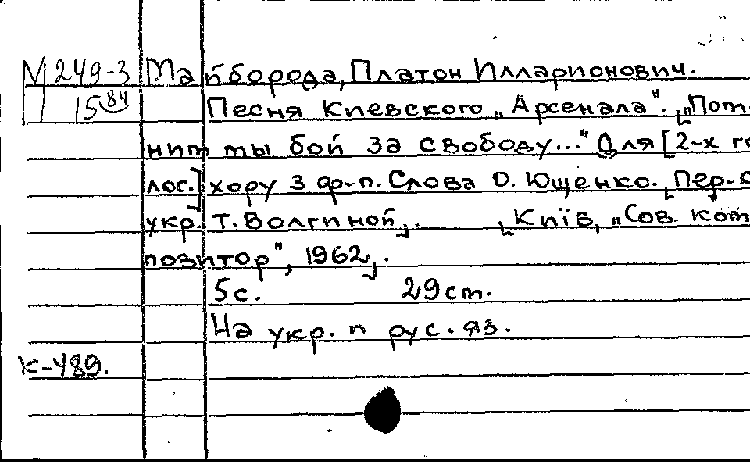 М 249-3 Майборода, Платон Илларионович.
15 84 Песня Киевского „Арсенала". „Пом
нит ты бой за свободу..." Для [2-х го
лос.] хору з ф-п. Слова О. Ющенко. [Пер. с
укр. Т. Волгиной]. [Київ, „Сов. ком
позитор", 1962].
5с. 29см.
На укр. и рус. яз.
К-489.